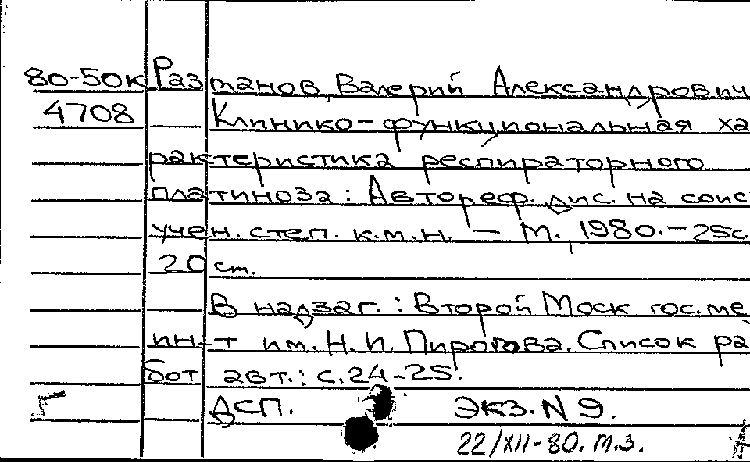 80-50к Разманов, Валерий Александрович
4708 Клинико-функциональная ха
рактеристика респираторного
платиноза: Автореф. дис. на соис
учен. степ. к.м.н. — М., 1980.-25с
20 см.
В надзаг.: Второй Моск гос. ме
ин-т им. Н. И. Пирогова. Список ра
бот авт.: с.24-25.
ДСП. Экз. N 9.
22/XII-80. М.З.